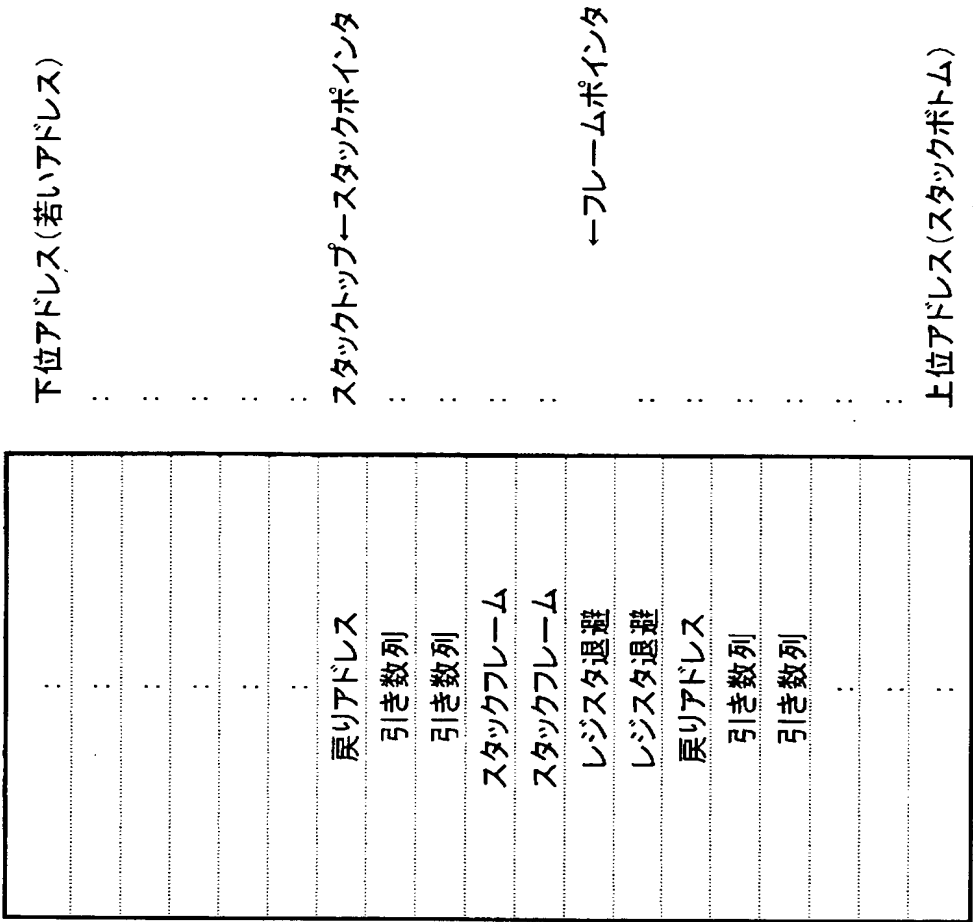 : 下位アドレス(若いアドレス)
: :
: :
: :
: :
: :
戻りアドレス スタックトップ←スタックポインタ
引き数列 :
引き数列 :
スタックフレーム :
スタックフレーム :
レジスタ退避 ←フレームポインタ
レジスタ退避 :
戻りアドレス :
引き数列 :
引き数列 :
: :
: :
: 上位アドレス(スタックボトム)